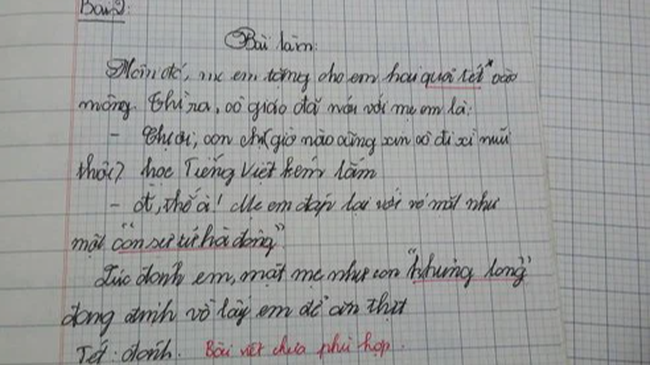 Bài 2:
Bài làm:
Hôm đó, mẹ em tặng cho em hai quả "tét" vào
mông. Thì ra, cô giáo đã nói với mẹ em là:
- Chị ơi, con chị giờ nào cũng xin cô đi xì mũi
thôi? học Tiếng Việt kém lắm
- Ờ, thế à! Mẹ em đáp lại với vẻ mặt như
một "con sư tử hà đông".
Lúc đánh em, mặt mẹ như con "khủng long"
đang định vồ lấy em để ăn thịt
Tét: đánh. Bài viết chưa phù hợp.